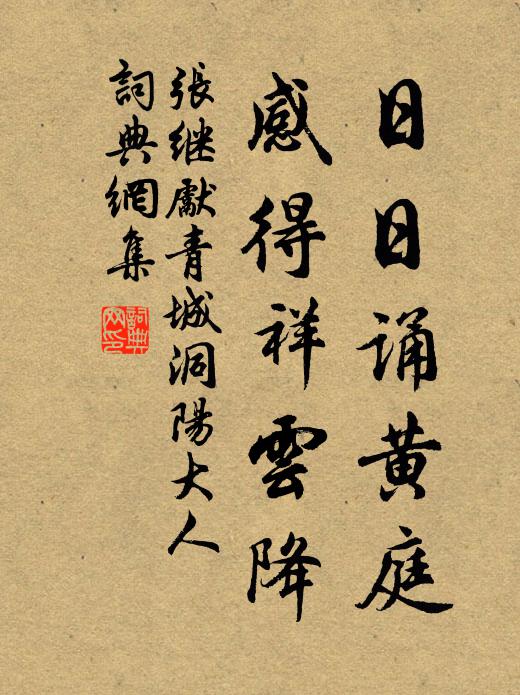 日日诵黄庭
感得祥雲降
張继獻青城洞陽大人
詞典網集
詞典网印